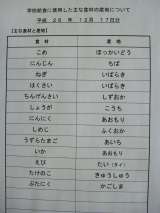 学校給食に使用した主な食材の産地について
平成 28年 12月 17日分
【主な食材と産地】
食材 産地
こめ ほっかいどう
にんじん ちば
ねぎ いばらき
はくさい いばらき
ちんげんさい しずおか
しょうが こうち
にんにく あおもり
しめじ ふくおか
うずらたまご あいち
いか あおもり
えび たい(タイ)
たけのこ きゅうしゅう
ぶたにく かごしま